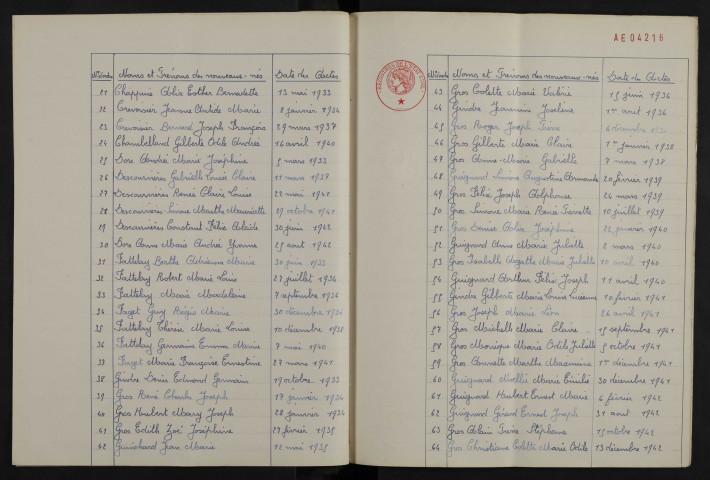 Nos d'ordre Noms et Prénoms des nouveaux-nés Date des Actes
21 Chappuis Alix Esther Bernadette 13 mai 1933
22 Crevoisier Jeanne Clotilde Marie 8 janvier 1934
23 Crevoisier Bernard Joseph François 29 mars 1937
24 Chamballand Gilberte Odile Andrée 16 avril 1940
25 Dore André Marie Joséphine 5 mars 1933
26 Descourvières Gabrielle Louise Claire 11 mars 1938
27 Descourvières Renée Claire Louise 22 mai 1941
28 Descourvières Simone Marthe Mauricette 29 octobre 1941
29 Descourvières Constant Félix Alcide 30 juin 1942
30 Dore Anne Marie Andrée Yvonne 25 août 1942
31 Fattelay Berthe Adrienne Marie 30 juin 1933
32 Fattelay Robert Marie Louis 27 juillet 1934
33 Fattelay Marie Magdeleine 7 septembre 1936
34 Faget Guy Régis Marie 30 décembre 1936
35 Fattelay Thérèse Marie Louise 10 décembre 1938
36 Fattelay Germaine Emma Marie 7 mai 1940
37 Faget Marie Françoise Ernestine 27 mars 1941
38 Gindre Denis Edmond Germain 19 octobre 1933
39 Gros René Charles Joseph 17 janvier 1934
40 Gros Humbert Mary Joseph 28 janvier 1934
41 Gros Edith Zoé Joséphine 27 février 1935
42 Guinchard Jean Marie 12 mai 1935
AE 04216
Nos d'ordre Noms et Prénoms des nouveaux-nés Date des Actes
43 Gros Colette Marie Valérie 15 juin 1936
44 Gindre Jeannine Joseline 1er août 1936
45 Gros Roger Joseph Pierre 6 décembre
46 Gros Gilberte Marie Claire 1er janvier 1938
47 Gros Anne-Marie Gabrielle 7 mars 1938
48 Guignard Simone Augustine Armande 20 février 1939
49 Gros Félix Joseph Alphonse 24 mars 1939
50 Gros Simone Marie Renée Pierrette 10 juillet 1939
51 Gros Denise Alix Joséphine 22 janvier 1940
52 Guignard Anne Marie Juliette 2 mars 1940
53 Gros Isabelle Agathe Marie Juliette 10 avril 1940
54 Guignard Arthur Félix Joseph 11 avril 1940
55 Gindre Gilberte Marie Louise Lucienne 10 février 1941
56 Gros Joseph Marie Léon 26 avril 1941
57 Gros Michelle Marie Claire 15 septembre 1941
58 Gros Monique Marie Odile Juliette 5 octobre 1941
59 Gros Annette Marthe Maximine 1er décembre 1941
60 Guignard Noëlle Marie Emilie 30 décembre 1941
61 Guignard Humbert Ernest Marie 6 février 1942
62 Guignard Gérard Ernest Joseph 31 août 1942
63 Gros Alain Pierre Stéphane 15 octobre 1942
64 Gros Christiane Colette Marie Odile 13 décembre 1942